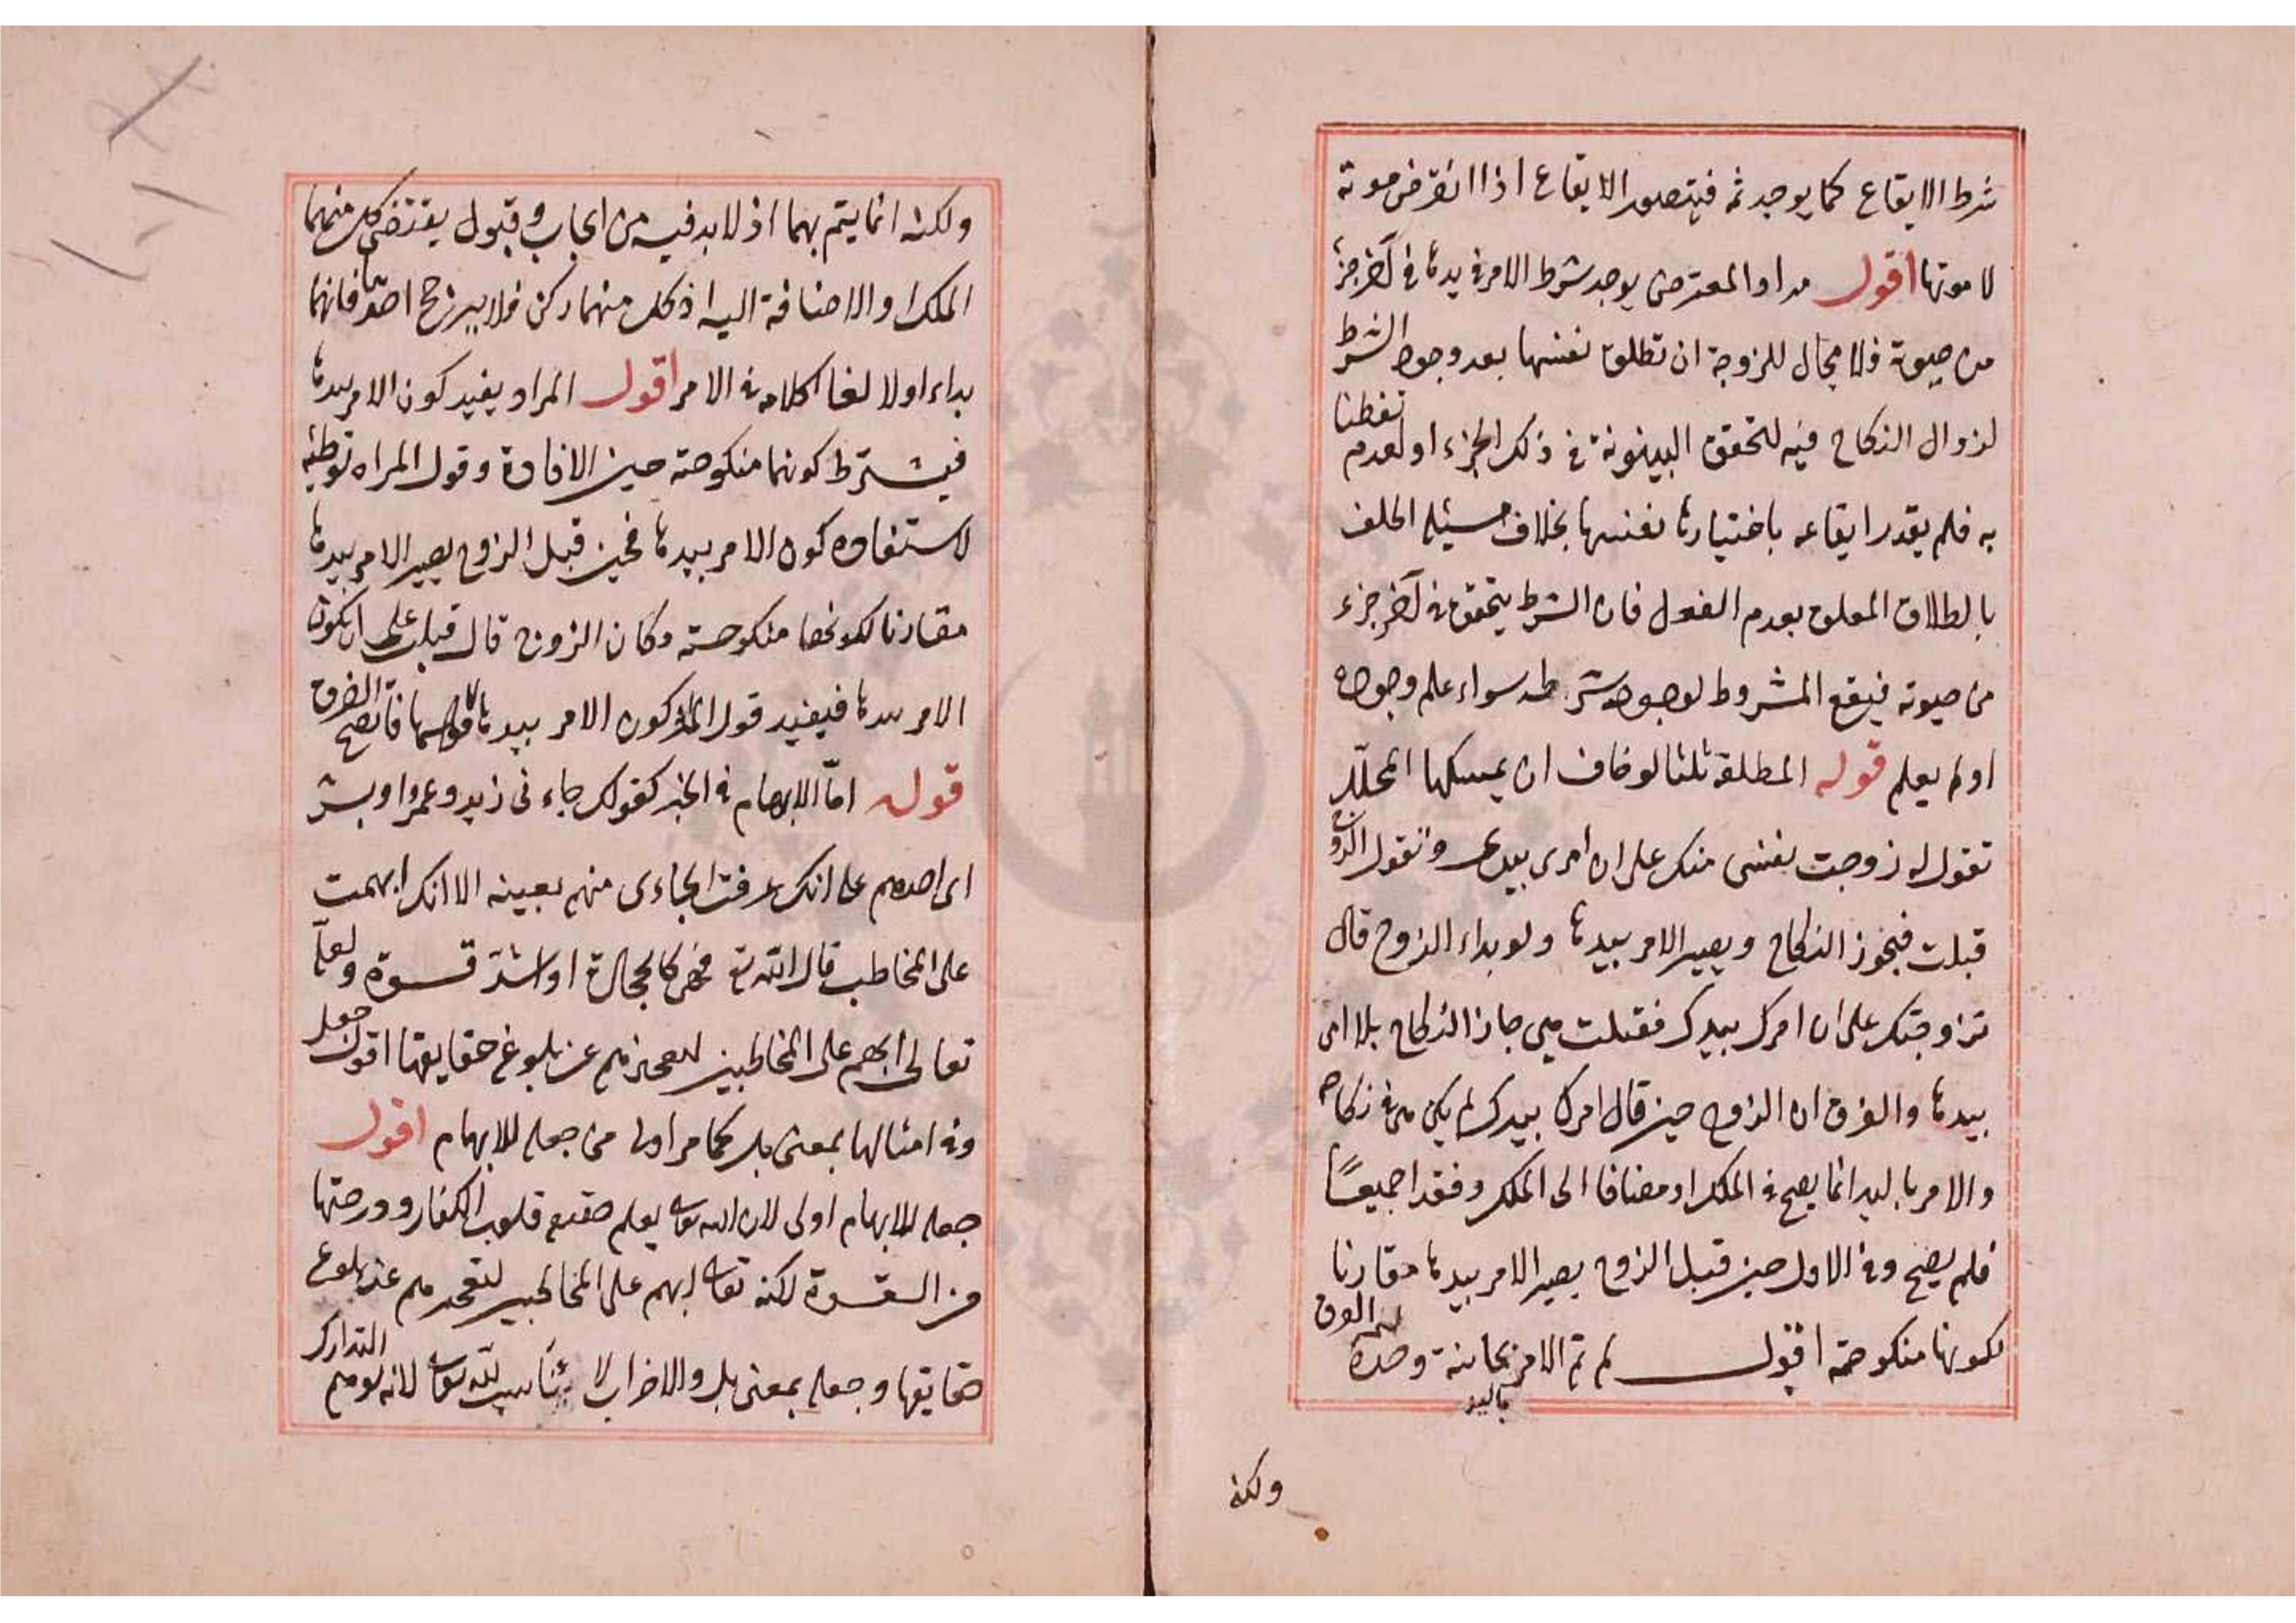 شرط الايقاع كما يوجد ثمه فيتصور الايقاع اذا انقرض موته
لا موتها اقول مراد المعترض يوجد شرط الامر في يدها في آخر جزء
من حيوته فلا مجال للزوجة ان تطلق نفسها بعد وجود الشرط
لزوال النكاح فيه لتحقق البينونة في ذلك الجزء او لعدم تفطنها
به فلم يقدر ايقاعه باختيارها نفسها بخلاف مسئلة الحلف
بالطلاق المعلق بعدم الفعل فان الشرط يتحقق في آخر جزء
من حيوته فيقع المشروط لوجود شرطه سواء علم وجوده
او لم يعلم قوله المطلقة ثلثا لو خاف ان يمسكها المحلل
تقول له زوجت نفسى منك على ان امرى بيدى وتقول الزوج
قبلت فيجوز النكاح ويصير الامر بيدها ولو بداء الزوج قال
تزوجتك على ان امرك بيدك فقبلت هي جاز النكاح بلا امر
بيدها والفرق ان الزوج حين قال امرك بيدك لم يكن هي في نكاحه
والامر باليد انما يصح في الملك او مضافا الى الملك وفقدا جميعًا
فلم يصح وفي الاول حين قبل الزوج يصير الامر بيدها مقارنا
لكونها منكوحة اقول لم يتم الامر بجانبه وحده
باليد
ولكنه
ولكنه انما يتم بهما اذ لا بد فيه من ايجاب وقبول يقتضى كل منهما
الملك او الاضافة اليه اذ كل منهما ركن فلا يرجح احدهما فانهما
بداء اولا لغا كلامه في الامر اقول المراد يفيد كون الامر بيدها
فيشترط كونها منكوحته حين الافادة وقول المراه توطئه
لاستفاده كون الامر بيدها فحين قبل الزوج يصير الامر بيدها
مقارنا لكونها منكوحته وكان الزوج قال قبلت على ان يكون
الامر بيدها فيفيد قوله كون الامر بيدها فاتضح الفرق
قوله امّا الابهام في الخبر كقولك جاءنى زيد وعمرو او بشر
اى احدهم على انك عرفت الجاءى منهم بعينه الا انك ابهمت
على المخاطب قال الله تع فهى كالحجارة او اشدّ قسوة والله
تعالى ابهم على المخاطبين لعجزهم عن بلوغ حقايقها اقول جعله
وفي امثالها بمعنى بل كما مر اولى من جعله للابهام اقول
جعله للابهام اولى لان الله تعالى يعلم حقيقه قلوب الكفار ودرجتها
من القسوة لكنه تعالى ابهم على المخاطبين لعجزهم عن بلوغ
حقايقها وجعله بمعنى بل والاضراب لا يناسب لله تعالى لانه يوهم التدارك